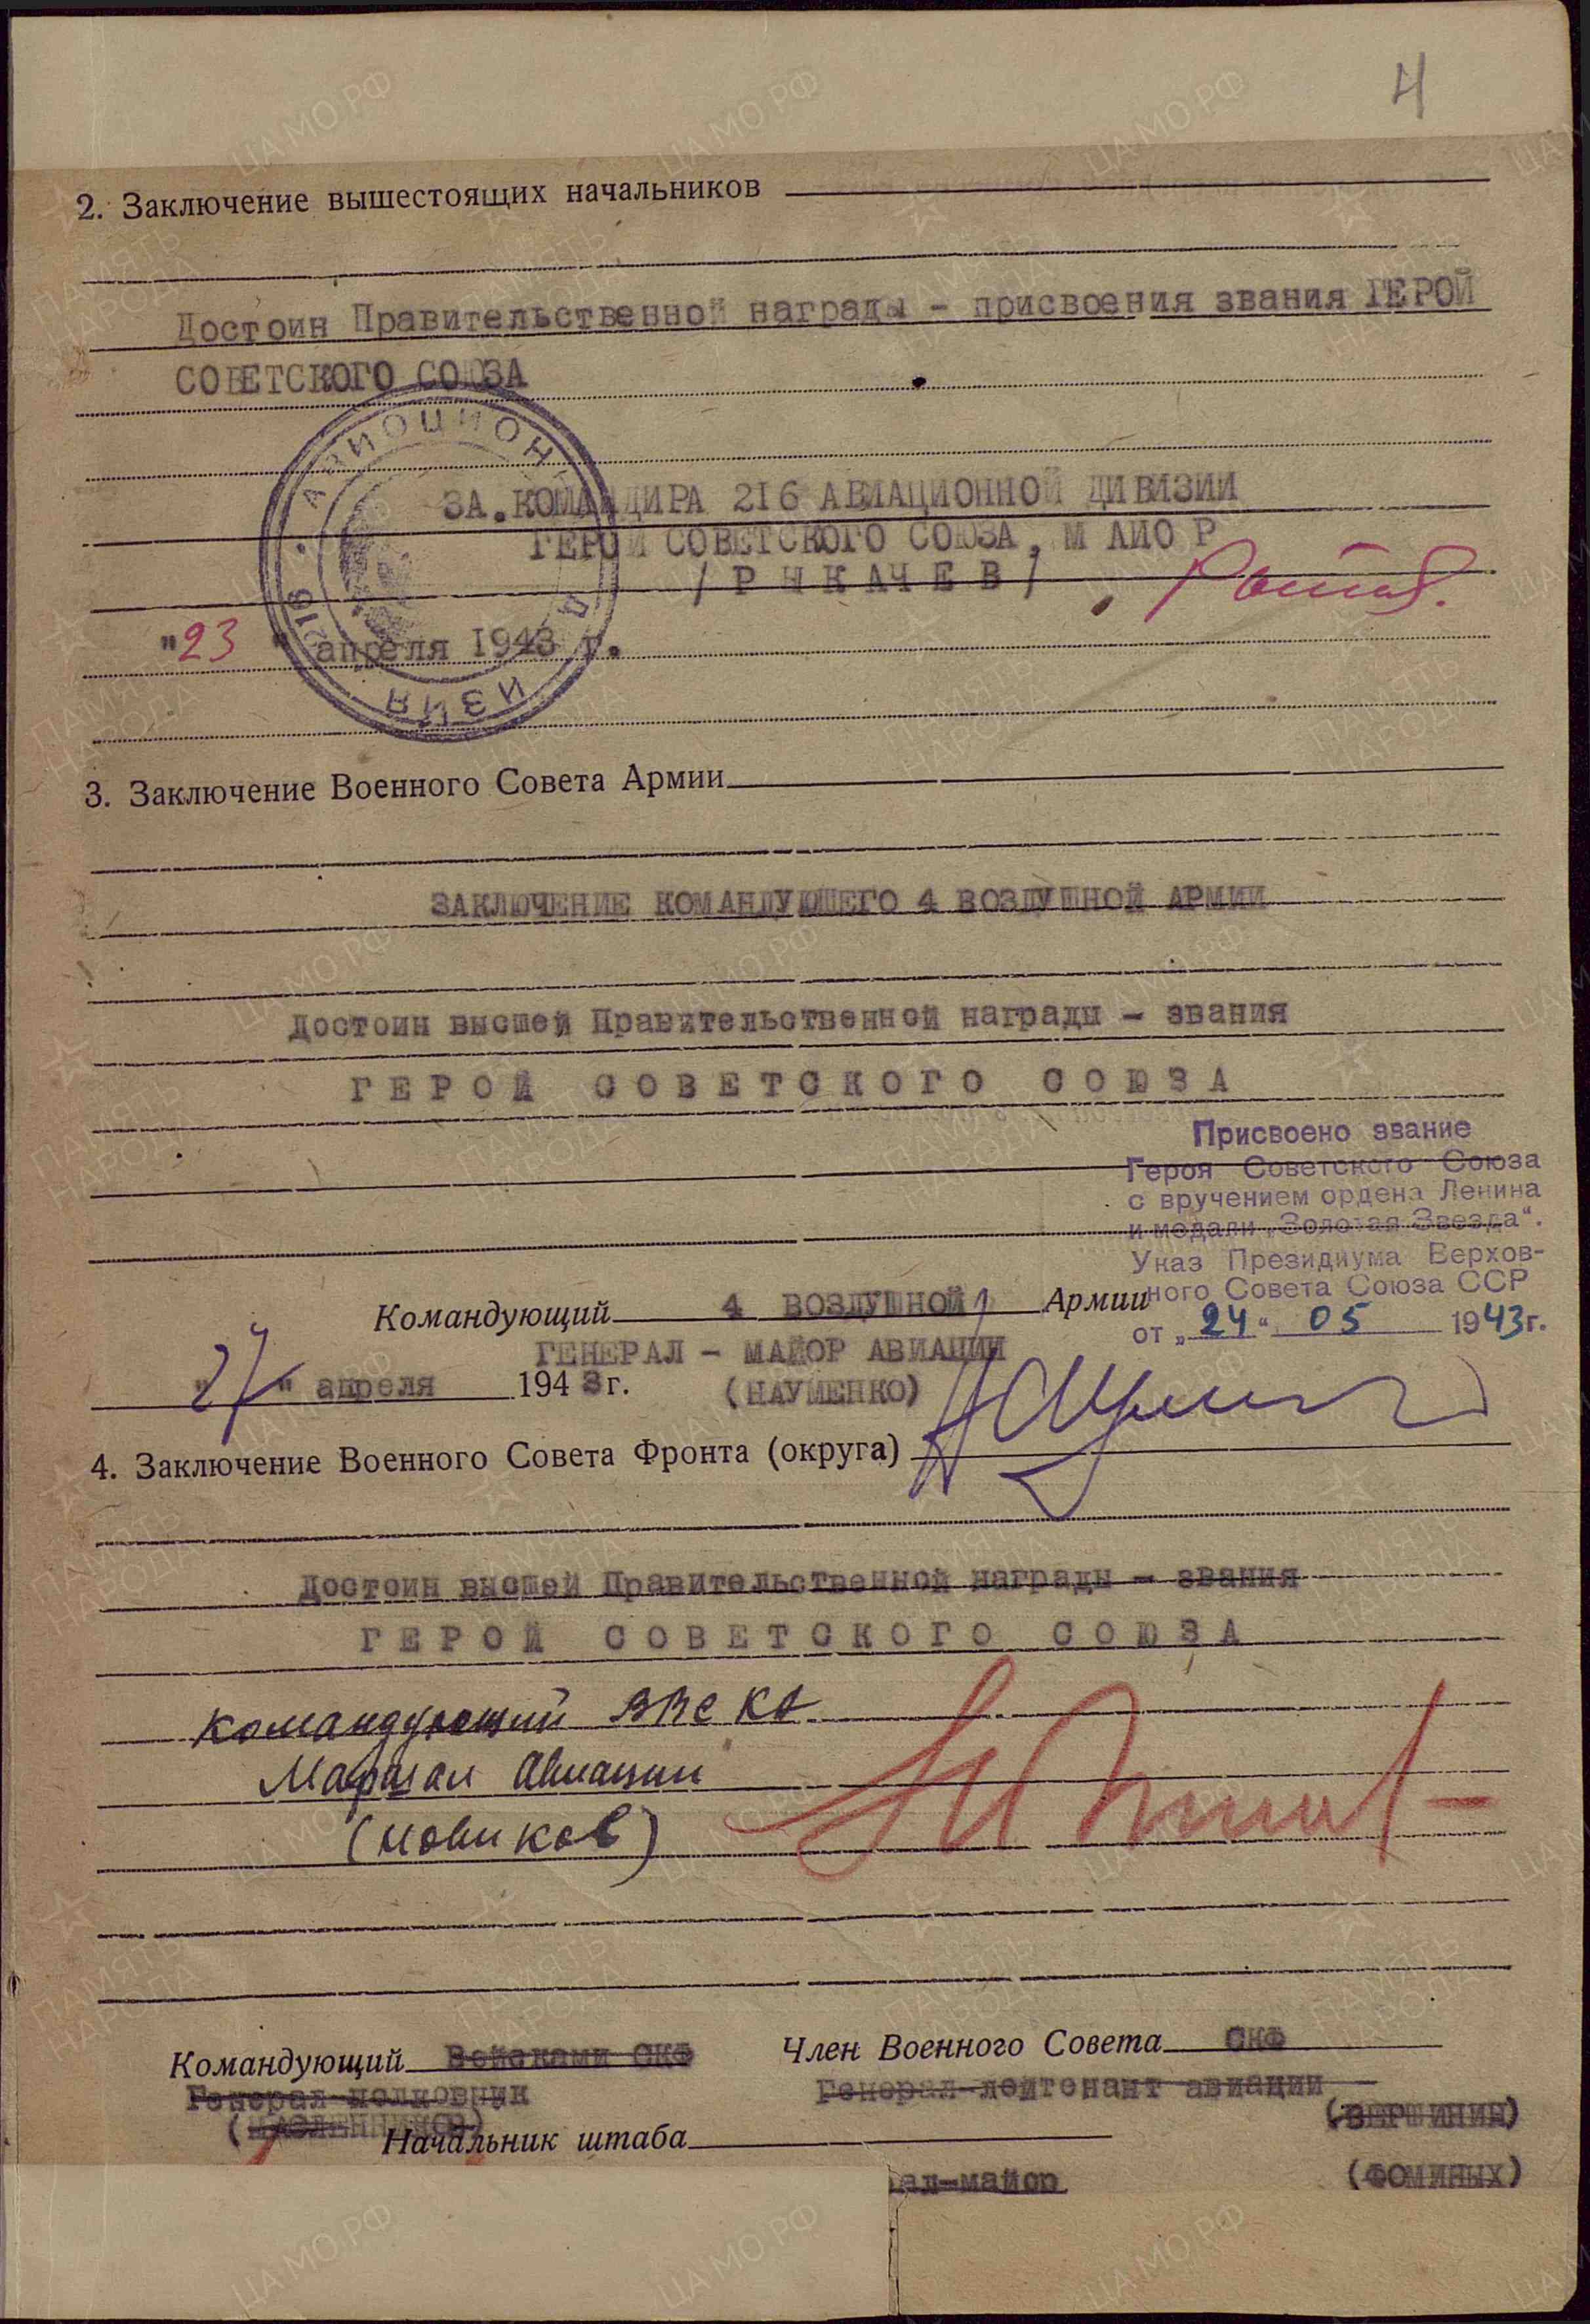 4
2. Заключение вышестоящих начальников
Достоин Правительственной награды - присвоения звания ГЕРОЙ
СОВЕТСКОГО СОЮЗА
ЗА.КОМАНДИРА 216 АВИАЦИОННОЙ ДИВИЗИИ
ГЕРОЙ СОВЕТСКОГО СОЮЗА, МАЙОР
/РЫКАЧЕВ/
"23" апреля 1943 г.
3. Заключение Военного Совета Армии
ЗАКЛЮЧЕНИЕ КОМАНДУЮЩЕГО 4 ВОЗДУШНОЙ АРМИИ
Достоин высшей Правительственной награды - звания
ГЕРОЙ СОВЕТСКОГО СОЮЗА
Присвоено звание
Героя Советского Союза
с вручением ордена Ленина
и медали „Золотая Звезда“.
Указ Президиума Верхов-
ного Совета Союза ССР
от „24“ 05 1943г.
Командующий 4 ВОЗДУШНОЙ Армии
ГЕНЕРАЛ - МАЙОР АВИАЦИИ
"27" апреля 1943 г. (НАУМЕНКО)
4. Заключение Военного Совета Фронта (округа)
Достоин высшей Правительственной награды - звания
ГЕРОЙ СОВЕТСКОГО СОЮЗА
Командующий ВВС КА
Маршал Авиации
(Новиков)
Командующий Войсками СКФ Член Военного Совета СКФ
Генерал-полковник Генерал-лейтенант авиации
(МАСЛЕННИКОВ) (ВЕРШИНИН)
Начальник штаба
ал-майор (ФОМИНЫХ)